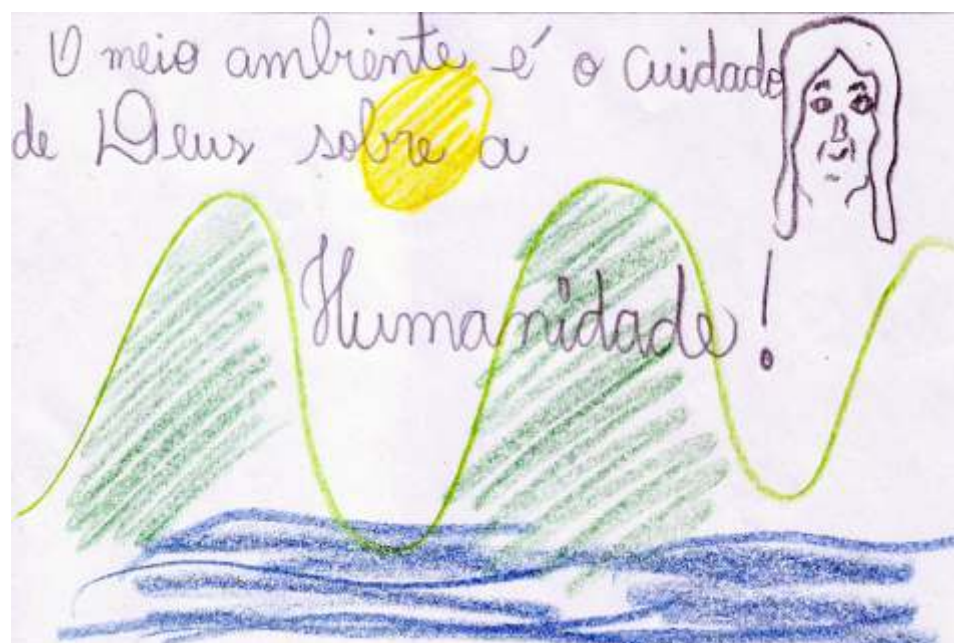 O meio ambiente é o cuidado
de Deus sobre a
Humanidade!